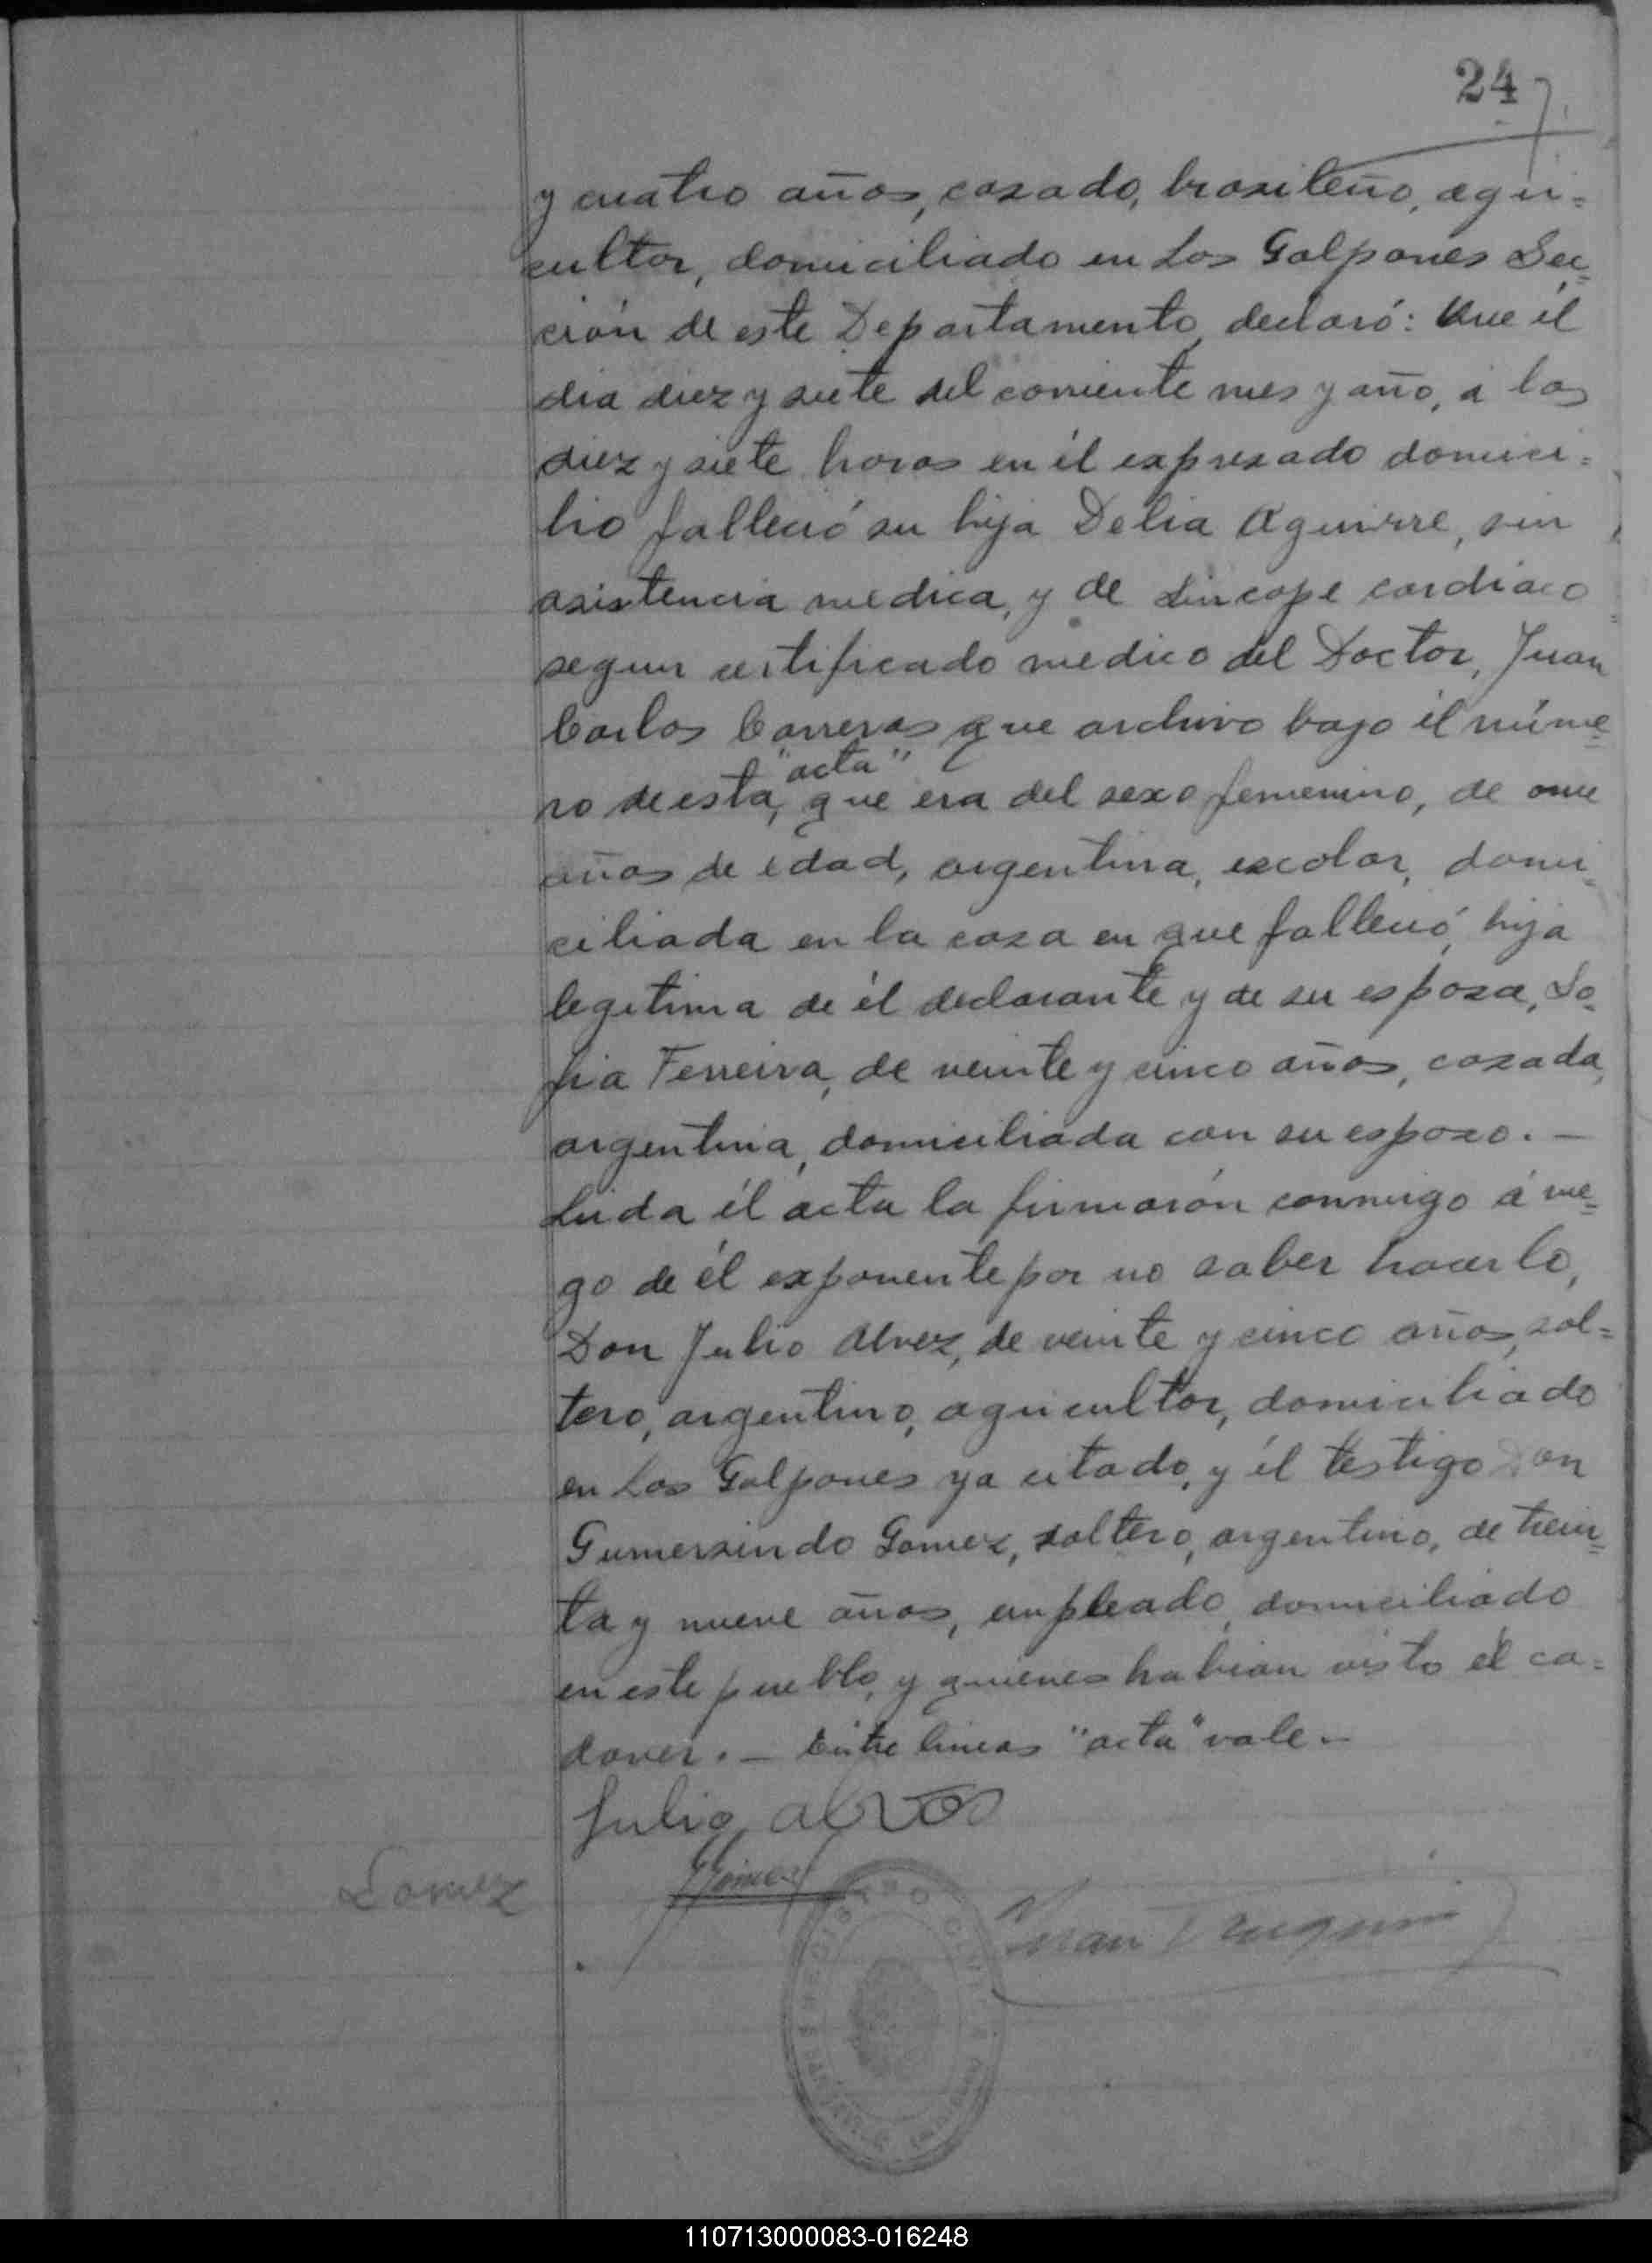 24
y cuatro años, casado, brasileño, agri=
cultor, domiciliado en Los Galpones Sec=
ción de este Departamento, declaró: Que él
dia diez y siete del corriente mes y año, á las
diez y siete horas en él expresado domici=
lio falleció su hija Delia Aguirre, sin
asistencia medica, y de sincope cardiaco
segun certificado medico del Doctor, Juan
Carlos Carreras que archivo bajo él núme=
"acta"
ro de esta, que era del sexo femenino, de once
años de edad, argentina, escolar, domi=
ciliada en la casa en que falleció, hija
legitima de él declarante y de su esposa, So=
fia Ferreira, de veinte y cinco años, casada,
argentina, domiciliada con su esposo. —
Leida él acta la firmarón conmigo á rue=
go de él exponente por no saber hacerlo,
Don Julio Alvez, de veinte y cinco años, sol=
tero, argentino, agricultor, domiciliado
en Los Galpones ya citado, y él testigo Don
Gumersindo Gomez, soltero, argentino, de trein=
ta y nueve años, empleado, domiciliado
en este pueblo, y quienes habian visto él ca=
daver. — Entre lineas "acta" vale. —
Julio alves
Gomez
110713000083-016248